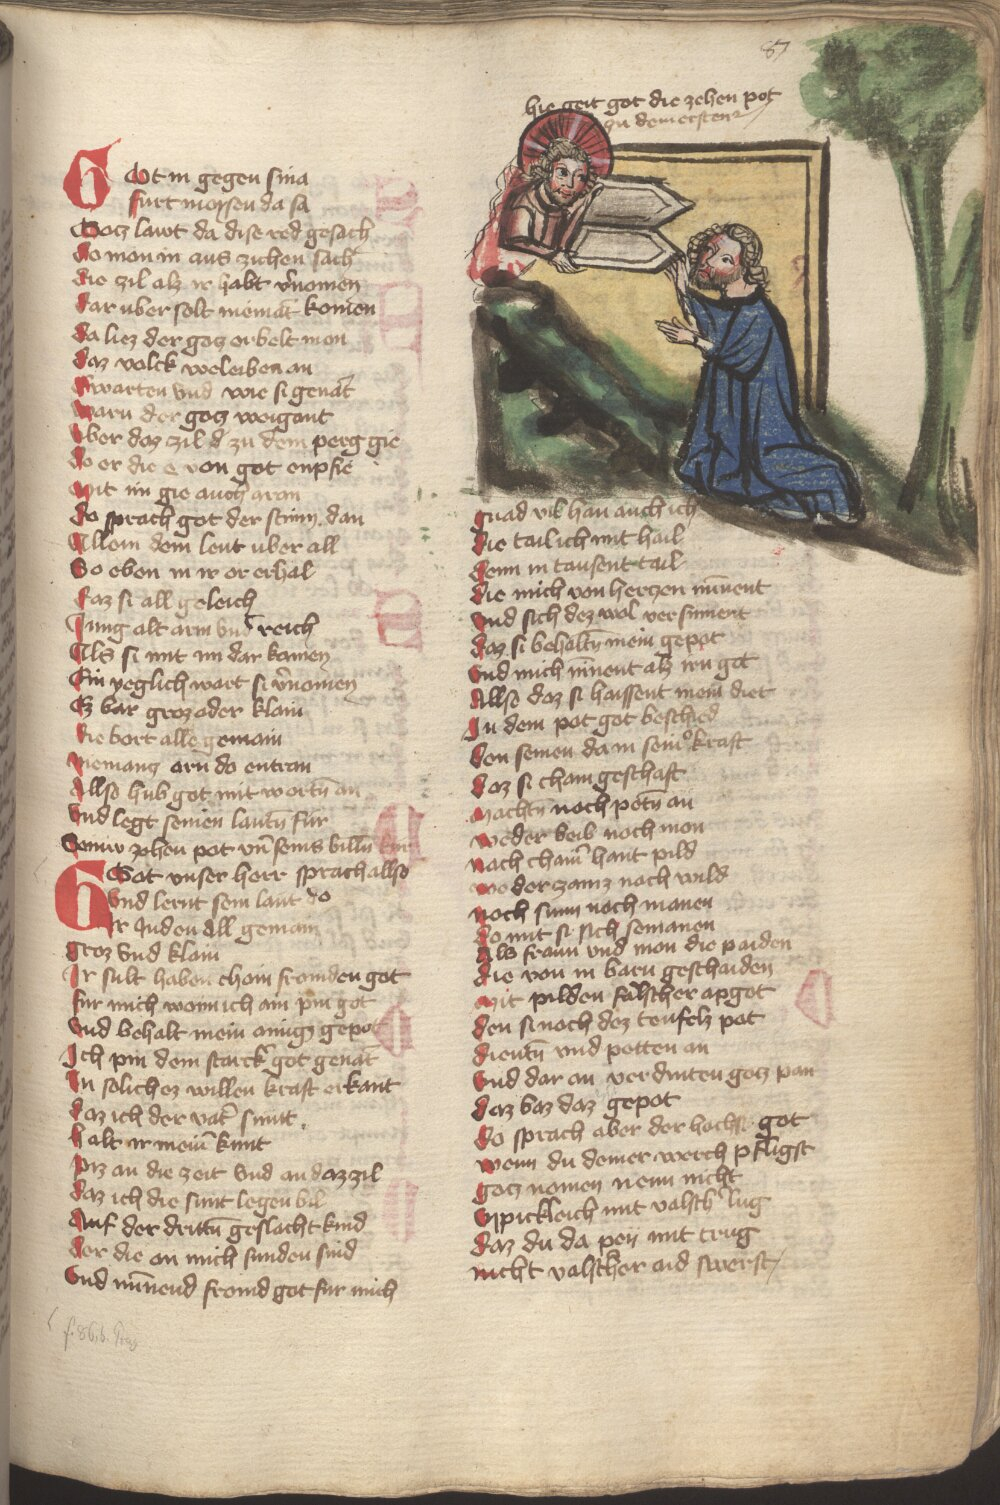 87
hie geit got die zehen pot
zu dem ersten
Got in gegen sina
furt moysen da sa
Gotz lawt da dise red gesach
do mon in aus zichen sach
die zil alz ir habt v̄nomen
dar uber solt niemāt komen
da liez der gotz erbelt mon
daz volck weleiben an
warten vnd wie si genāt
warn der gotz weigant
vber daz zil d zu dem perg gie
do er die e von got enpfie
mit im gie auch aron
do sprach got der stimm dan
Allem dem leut uber all
So eben in ir or erhal
daz si all geleich
Jung alt arm vnd reich
Als si mit im dar komen
Ein yeglich wort si v̄nomen
Ez bar groz oder klain
die bort alle gemain
niemanz orn do entran
Allso hub got mit wortn an
Vnd legt seinen lautn fur
Seniw zehen pot vn̄ seins billn
Got vnser herr sprach allso
Vnd lernt sein laut do
Ir Juden all gemain
groz vnd klain
Ir sult haben chain fromden got
fur mich wann ich ain pin got
Vnd behalt mein ainigz gepot
Ich pin dem starck got genāt
In solichez willen kraft erkant
daz ich der vat̄ sunt
halt ir mein̄ kint
piz an die zeit Vnd an daz zil
daz ich die sunt legen bil
Auf der drittn geslacht kind
der die an mich sunden sind
Vnd minnend fromd got fur mich
f. 86. b.
gnad vil han auch ich
die tail ich mit hail
denn in tausent tail
die mich von hertzen minnent
vnd sich dez wol versinnent
daz si behaltn mein gepot
Vnd mich minent alz irn got
Allso daz si hassent mein diet
In dem pot got beschied
den seinen da in seiner kraft
daz si chain geschaft
machtn noch petn an
weder beib noch mon
nach chain̄ hant pild
weder zamz nach wild
noch sunn noch manen
do mit si sich semanen
Als frawn vnd mon die paiden
die von in barn geschaiden
mit pilden falscher apgot
den si noch dez teufelz pot
dientn vnd petten an
Vnd dar an verdinten gotz pan
daz baz daz gepot
do sprach aber der hochst got
wenn du deiner werch pfligst
gotz nomen nenn nicht
vppickleich mit valsch lug
daz du da peij mit trug
nicht valscher aid swerst